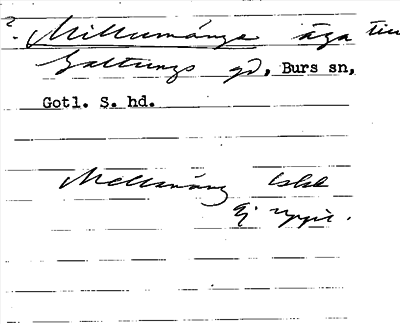 ? Millumänge äga till
Galtungs gd, Burs sn,
Gotl. S. hd.
Mellumäng
Ej uppt.